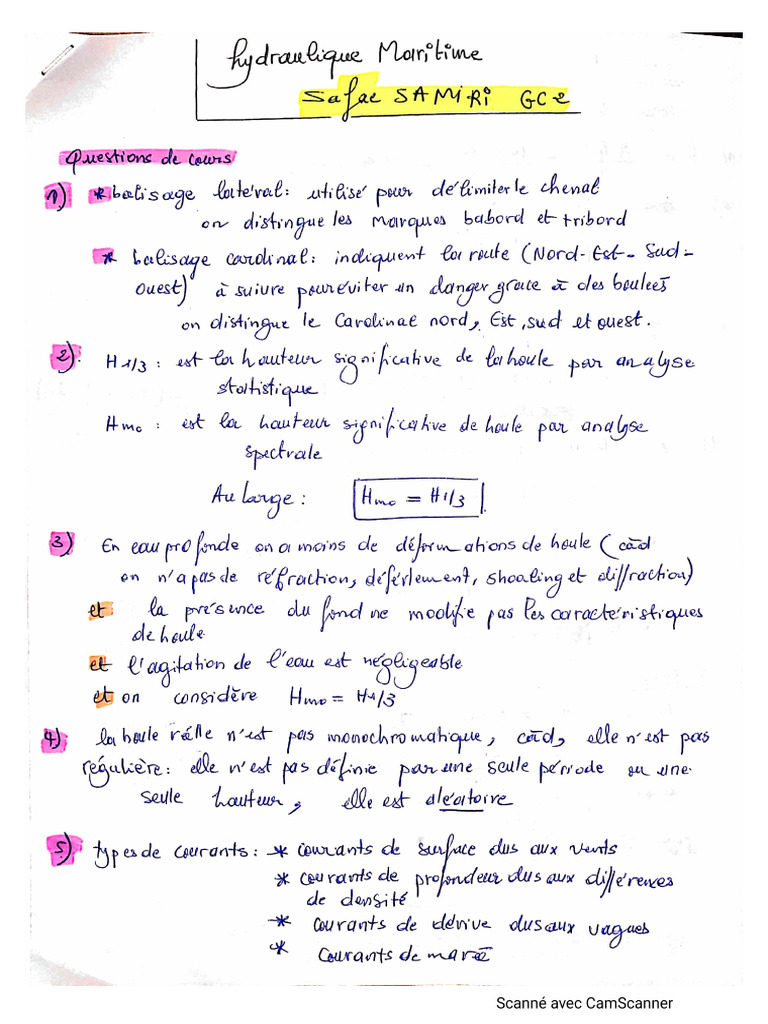 hydraulique Maritime
Safae SAMIRI GC2
Questions de cours
1) * balisage latéral: utilisé pour délimiter le chenal
on distingue les marques babord et tribord
* balisage cardinal: indiquent la route (Nord-Est-Sud-
Ouest) à suivre pour éviter un danger grace à des bouées
on distingue le Cardinal nord, Est, sud et ouest.
2) H1/3 : est la hauteur significative de la houle par analyse
statistique
Hmo : est la hauteur significative de houle par analyse
spectrale
Au large : Hmo = H1/3
3) En eau profonde on a moins de déformations de houle (càd
on n'a pas de réfraction, déférlement, shoaling et diffraction)
et la présence du fond ne modifie pas les caractéristiques
de houle
et l'agitation de l'eau est négligeable
et on considère Hmo = H1/3
4) la houle réelle n'est pas monochromatique, càd, elle n'est pas
régulière: elle n'est pas définie par une seule période ou une
seule hauteur, elle est aléatoire
5) types de courants : * courants de surface dus aux vents
* courants de profondeur dus aux différences
de densité
* courants de dérive dus aux vagues
* courants de marée
Scanné avec CamScanner